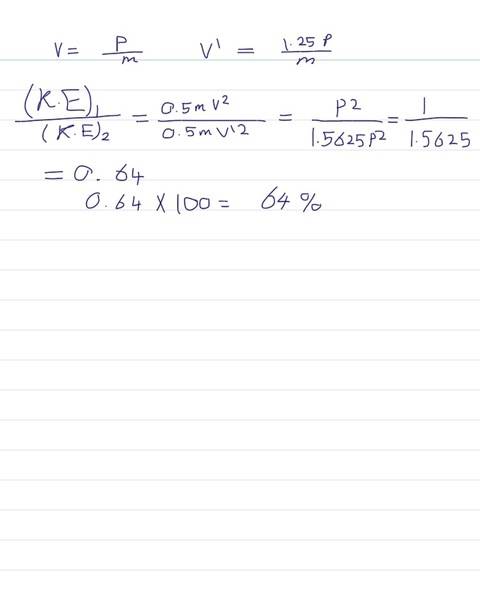 V = P/m V' = 1.25 P/m
(K.E)1/(K.E)2 = 0.5mV²/0.5mV'2 = P2/1.5625P2 = 1/1.5625
= 0.64
0.64 X 100 = 64%